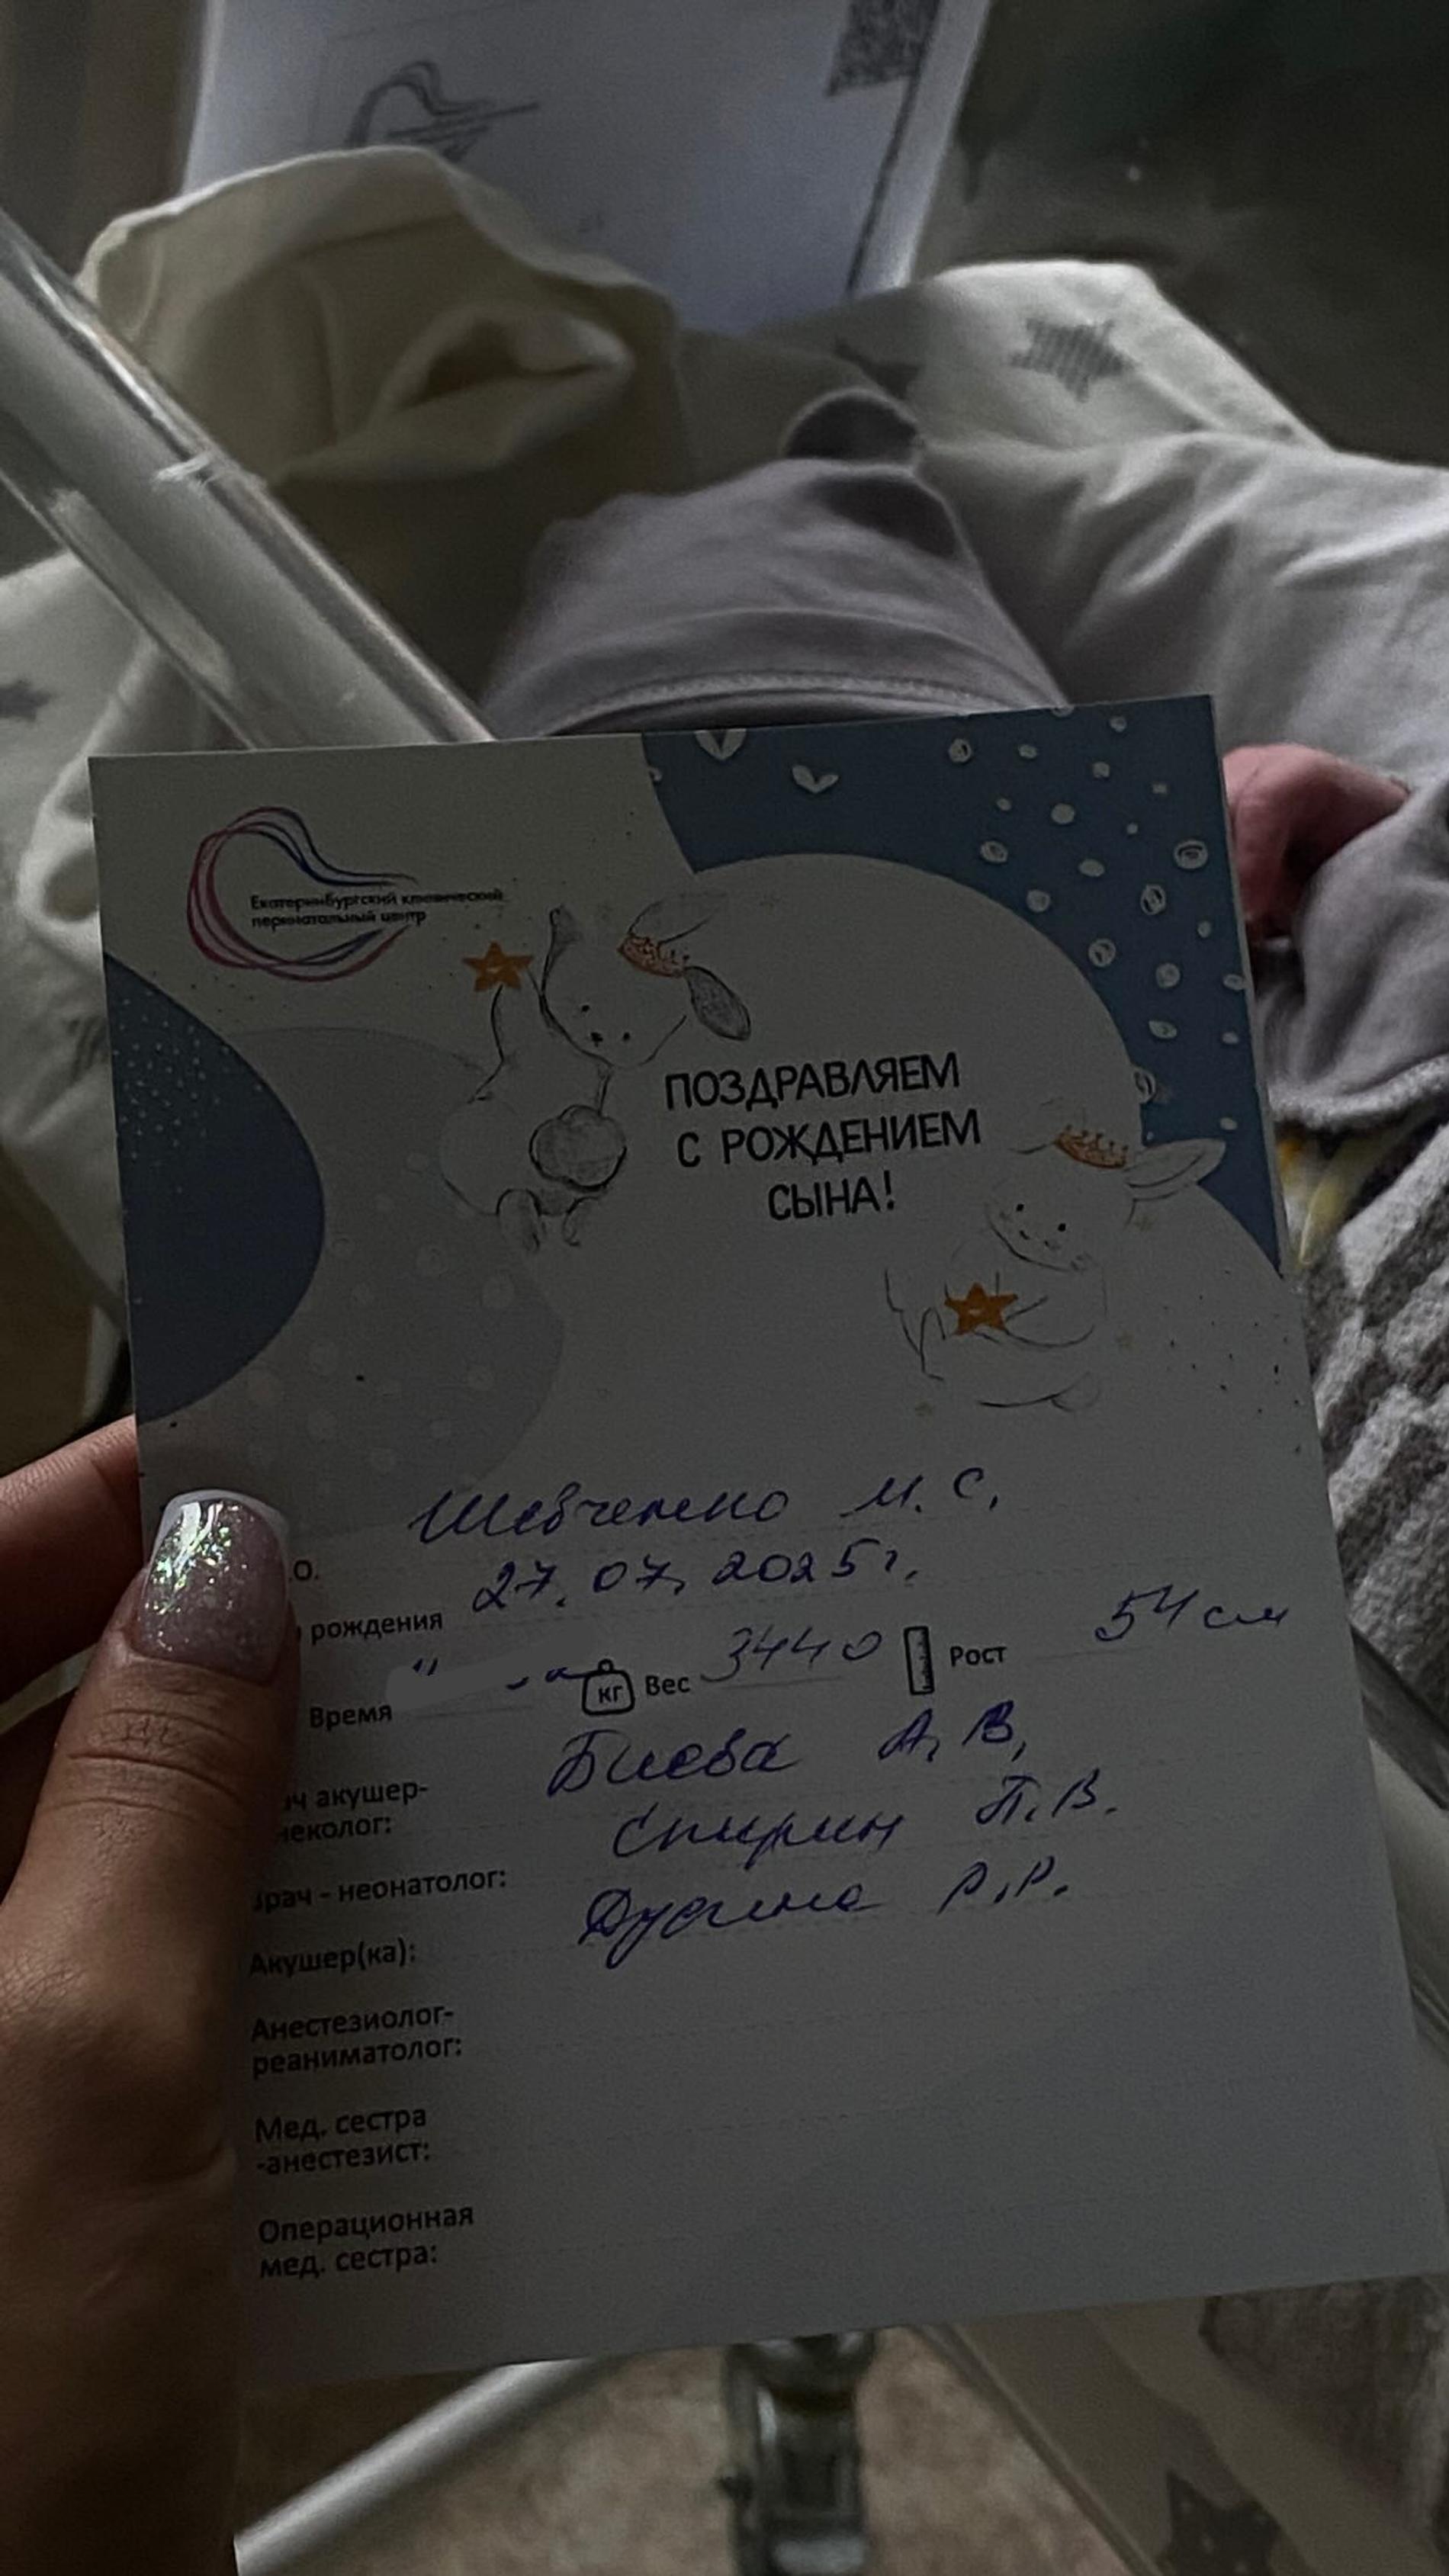 Екатеринбургский клинический
перинатальный центр
ПОЗДРАВЛЯЕМ
С РОЖДЕНИЕМ
СЫНА!
О. Шевченко М. С.
рождения 27.07.2025г.
Время Кг Вес 3440 Рост 54 см
акушер-
неколог: Биева А. В.
Врач - неонатолог: Спирин П. В.
Акушер(ка): Р. Р.
Анестезиолог-
реаниматолог:
Мед. сестра
-анестезист:
Операционная
мед. сестра: